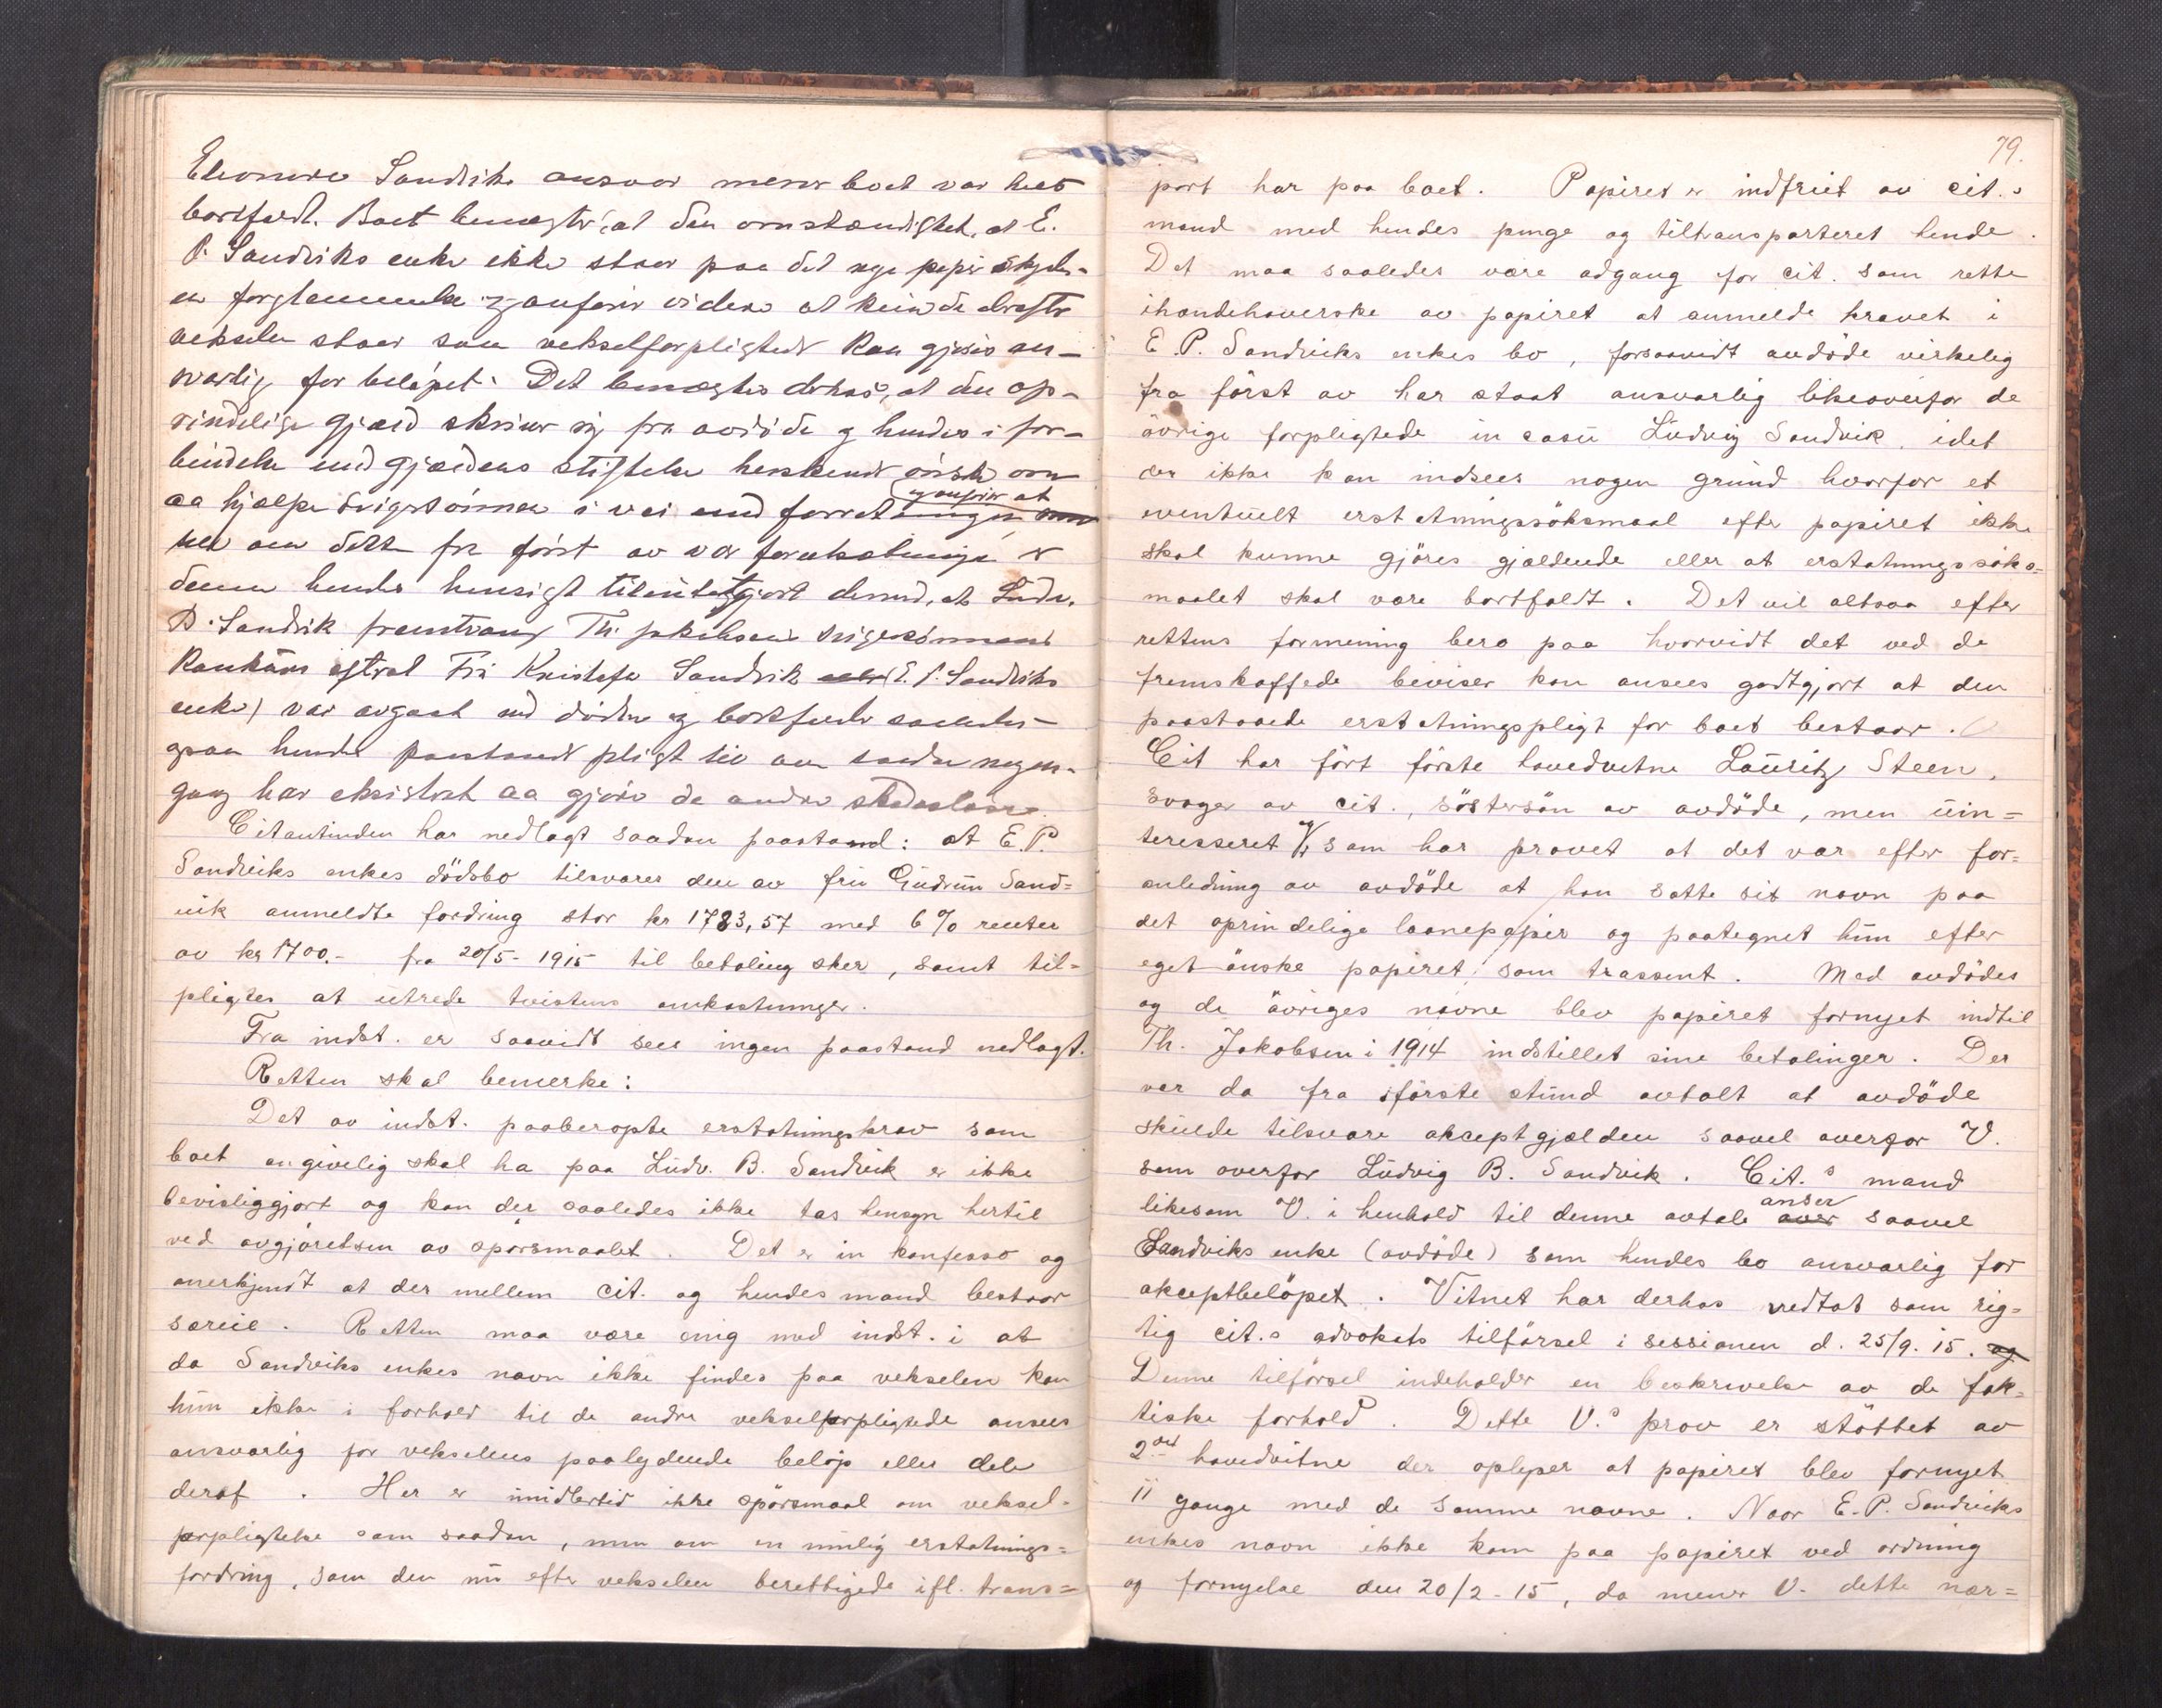 Eleonore Sandviks ansvar mener boet var helt
bortfaldt. Boet benegter, at den omstændighet, at E.
P. Sandviks enke ikke staar paa det nye papir skyldes
en forglemmelse og anfører videre at kun de drafts
vekselen staar som vekselforpligtede kan gjøres an-
svarlig for beløpet. Det benegtes derhos, at den op-
rindelige gjæld skriver sig fra avdöde og hendes i for-
bindelse med gjældens stiftelse herskende önske om
og anfører at
aa hjælpe svigersönnen i vei med forretningen
om dette fra först av var forutsætningen er
denne hendes hensigt tilintetgjort dermed, at Ludv.
B. Sandvik fremtvang Th. Jakobsens svigersönnens
konkurs efterat Fru Kristofa Sandvik E. P. Sandviks
enke) var avgaat ved döden og bortfaldt saaledes
ogsaa hendes paastaaede pligt til om saadan nogen-
gang har eksistert aa gjøre de andre skadeslöse.
Citantinden har nedlagt saadan paastand: at E. P.
Sandviks enkes dödsbo tilsvarer den av fru Gudrun Sand=
vik anmeldte fordring stor kr 1783,57 med 6 % renter
av kr 1700.- fra 20/5-1915 til betaling sker, samt til=
pligtes at utrede tvistens omkostninger.
Fra indst. er saavidt sees ingen paastand nedlagt.
Retten skal bemerke:
Det av indst. paaberopte erstatningskrav som
boet angivelig skal ha paa Ludv. B. Sandvik er ikke
bevisliggjort og kan der saaledes ikke tas hensyn hertil
ved avgjörelsen av spörsmaalet. Det er in konfesso og
anerkjendt at der mellem cit. og hendes mand bestaar
særeie. Retten maa være enig med indst. i at
da Sandviks enkes navn ikke findes paa vekselen kan
hun ikke i forhold til de andre vekselforpligtede ansees
ansvarlig for vekselens paalydende belöp eller dele
deraf. Her er imidlertid ikke spörsmaal om veksel-
forpligtelse som saadan, men om en mulig erstatnings=
fordring, som den nu efter vekselen berettigede ifl. trans=
79.
port har paa boet. Papiret er indfriet av cit.s
mand med hendes penge og tiltransporteret hende.
Det maa saaledes være adgang for cit. som rette
ihændehaverske av papiret at anmelde kravet i
E. P. Sandviks enkes bo, forsaavidt avdöde virkelig
fra först av har staat ansvarlig likeoverfor de
övrige forpligtede in casu Ludvig Sandvik, idet
der ikke kan indsees nogen grund hvorfor et
eventuelt erstatningssöksmaal efter papiret ikke
skal kunne gjöres gjældende eller at erstatningssöks=
maalet skal være bortfaldt. Det vil altsaa efter
rettens formening bero paa hvorvidt det ved de
fremskaffede beviser kan ansees godtgjort at den
paastaaede erstatningspligt for boet bestaar.
Cit har fört förste hovedvitne Lauritz Steen,
svoger av cit., söstersön av avdöde, men uin=
teresseret og som har provet at det var efter for=
anledning av avdöde at han satte sit navn paa
det oprindelige laanepapir og paategnet hun efter
eget önske papiret som trassent. Med avdödes
og de övriges navne blev papiret fornyet indtil
Th. Jakobsen i 1914 indstillet sine betalinger. Der
var da fra förste stund avtalt at avdöde
skulde tilsvare akceptgjælden saavel overfor V.
som overfor Ludvig B. Sandvik. Cit.s mand
likesom V. i henhold til denne avtale anser saavel
Sandviks enke (avdöde) som hendes bo ansvarlig for
akceptbelöpet. Vitnet har derhos vedtat som rig=
tig cit.s advokats tilförsel i sessionen d. 25/9.15. og
Denne tilförsel indeholder en beskrivelse av de fak=
tiske forhold. Dette V.s prov er stöttet av
2det hovedvitne der oplyser at papiret blev fornyet
11 gange med de samme navne. Naar E. P. Sandviks
enkes navn ikke kom paa papiret ved ordning
og fornyelse den 20/2-15, da mener V. dette nær=